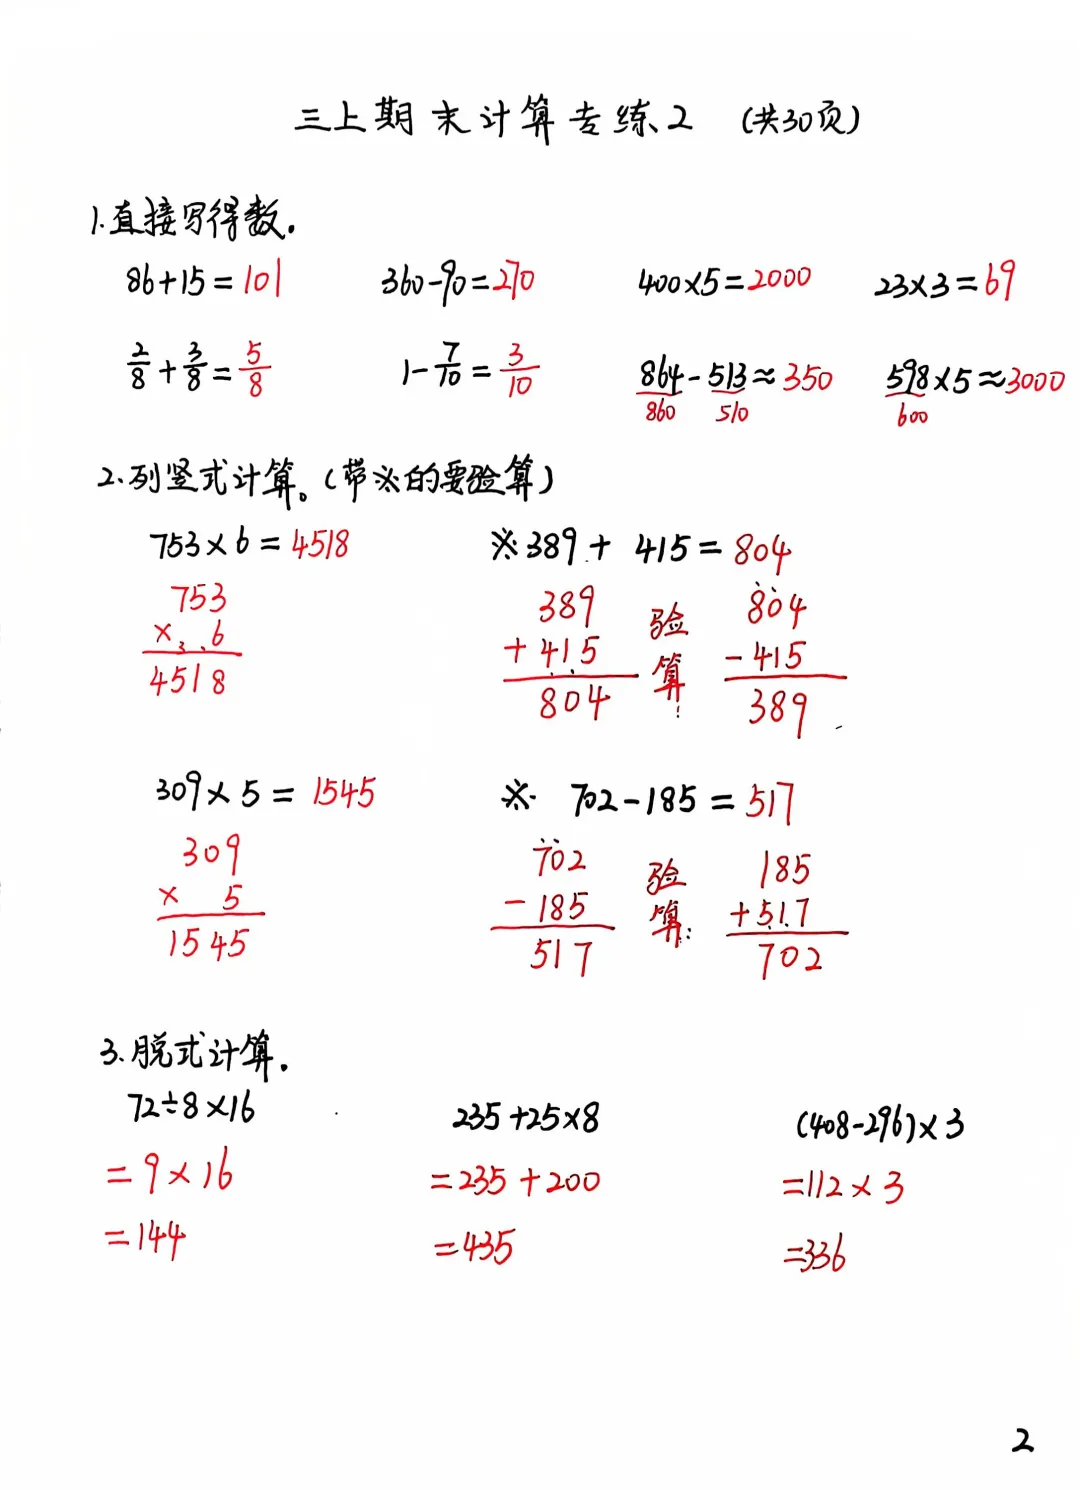 三上期末计算专练2 (共30页)
1.直接写得数.
86+15=101 360-90=270 400×5=2000 23×3=69
2/8+3/8=5/8 1-7/10=3/10 864-513≈350 598×5≈3000
860 510 600
2.列竖式计算。(带※的要验算)
753×6=4518 ※389+415=804
753 389 验 804
×3.6 +415 算: -415
4518 804 389
309×5=1545 ※ 702-185=517
309 702 验 185
× 5 -185 算: +517
1545 517 702
3.脱式计算.
72÷8×16 235+25×8 (408-296)×3
=9×16 =235+200 =112×3
=144 =435 =336
2